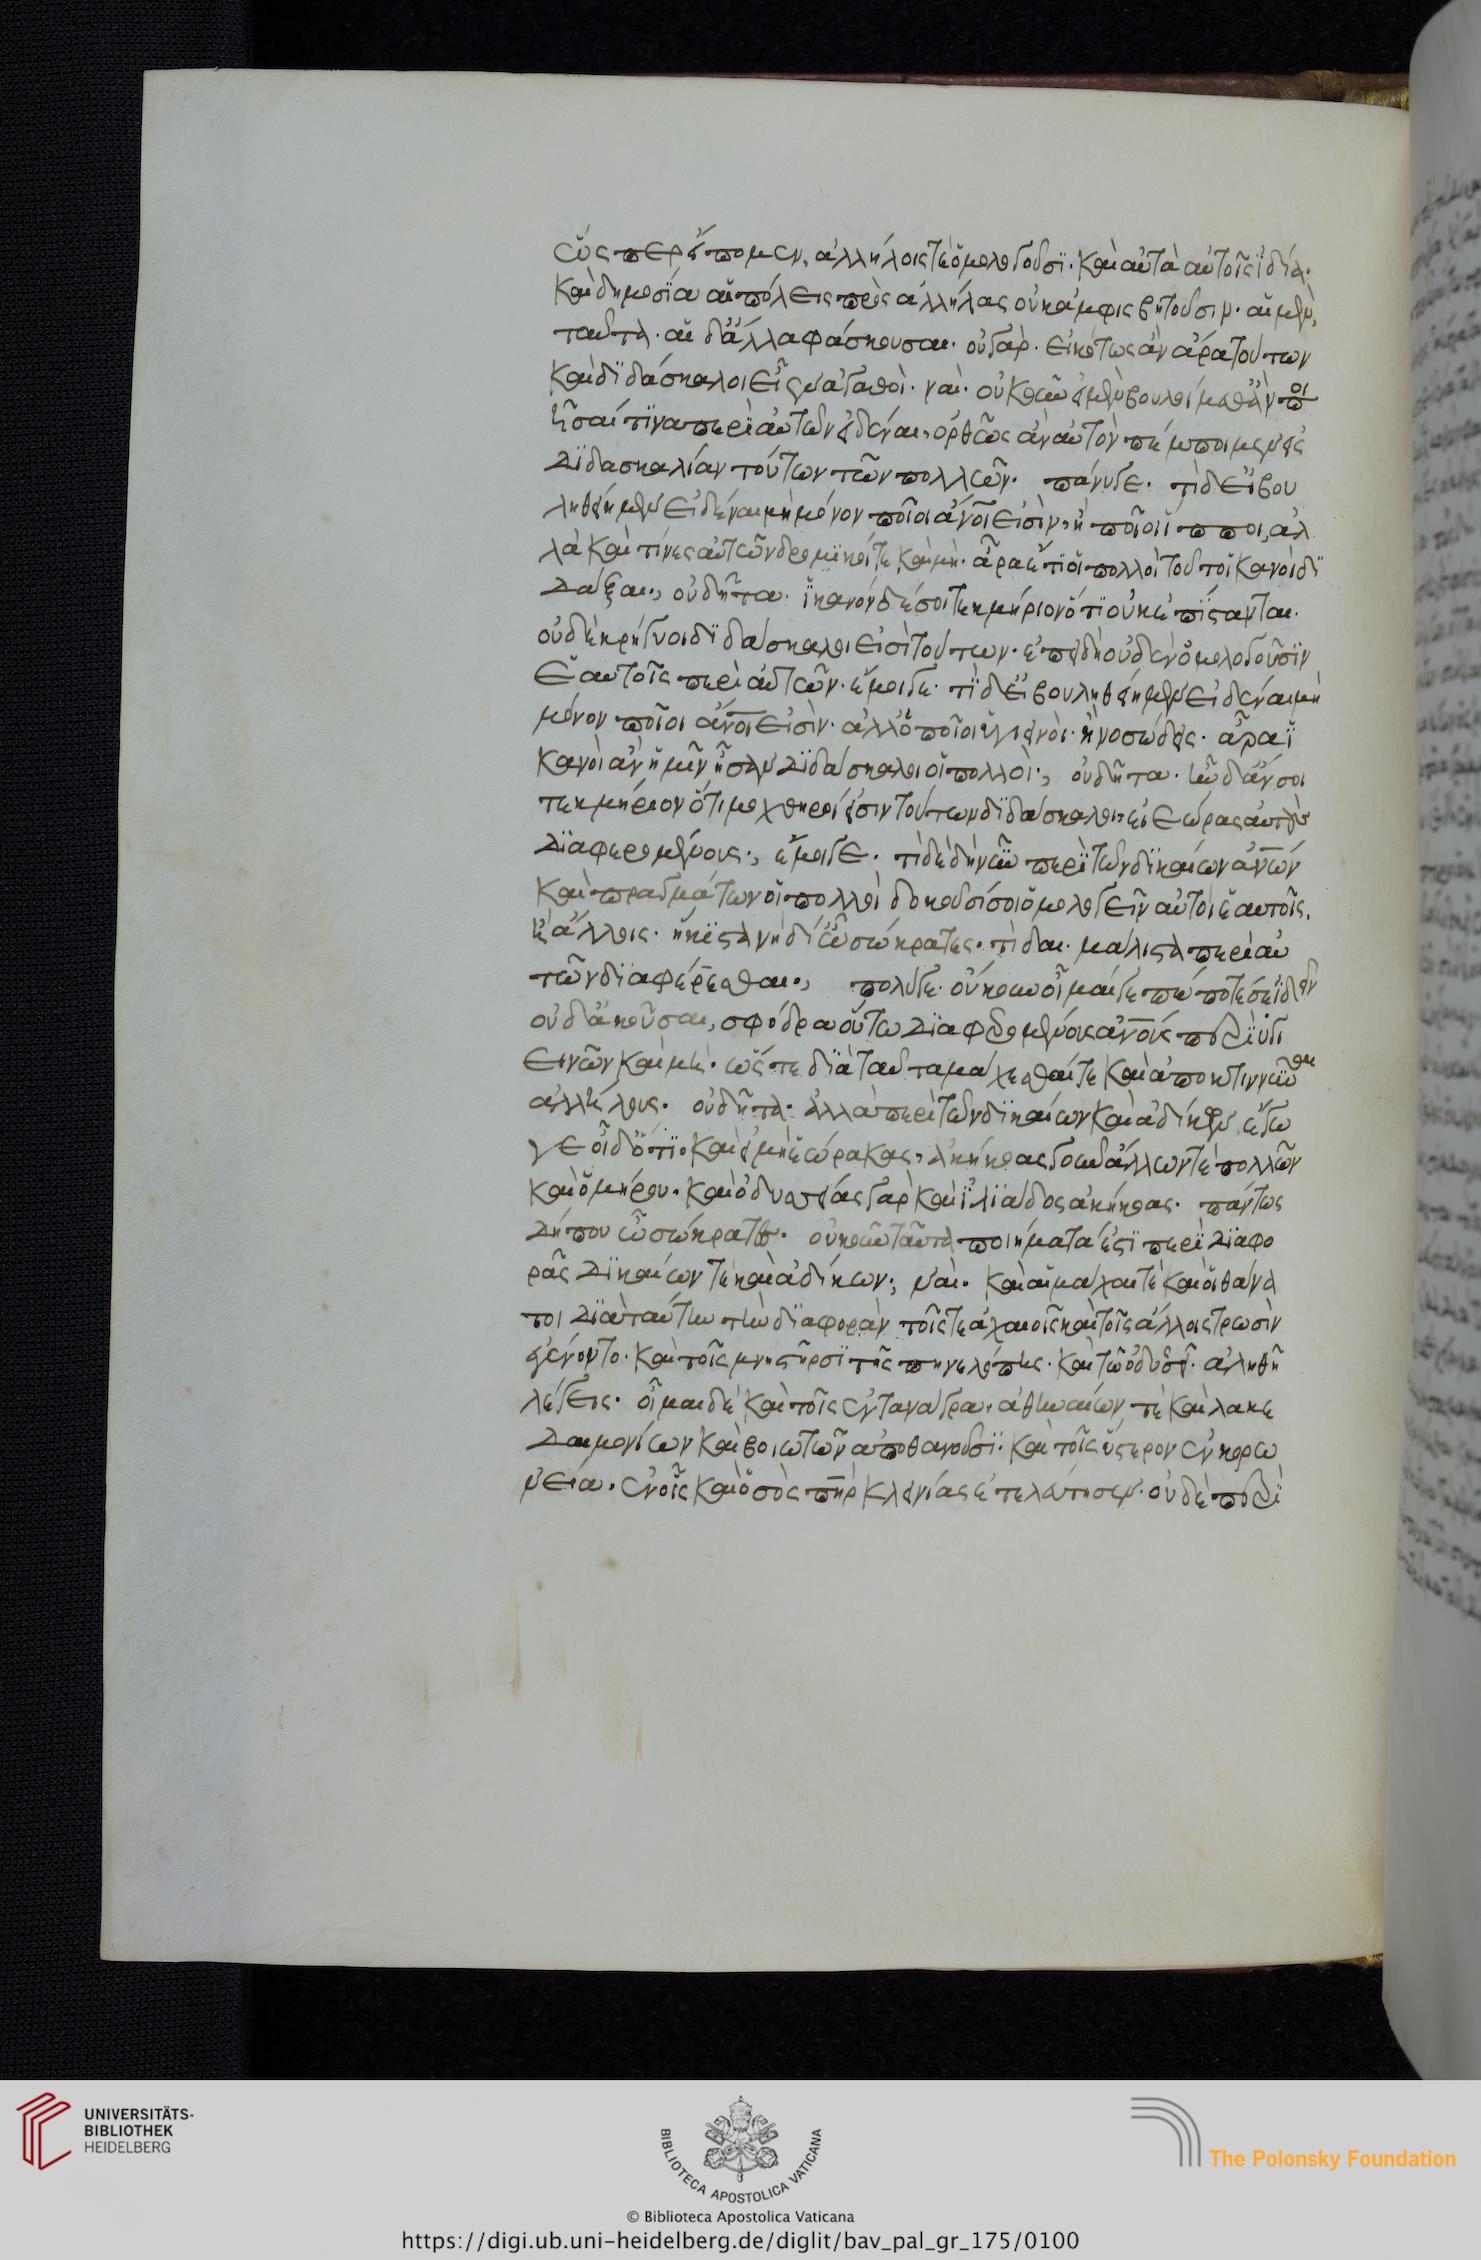 ὥς περ εἴπομεν, ἀλλήλοις τὲ ὁμολογοῦσι· καὶ αὐτὰ αὑτοῖς ἰδία·
καὶ δημοσία αἱ πόλεις πρὸς ἀλλήλας οὐκ ἀμφισβητοῦσιν· αἱ μὲν
ταῦτα· αἱ δ' ἄλλα φάσκουσαι· οὐ γάρ· εἰκότως ἂν ἄρα τούτων
καὶ διδάσκαλοι εἶεν ἀγαθοί· ναί· οὐκοῦν εἰ μὲν βουλοίμεθα ποι
ῆσαί τινα περὶ αὐτῶν εἰδέναι, ὀρθῶς ἂν αὐτὸν πέμποιμεν εἰς
διδασκαλίαν τούτων τῶν πολλῶν· πάνυ γε· τί δ' εἰ βου
ληθείημεν εἰδέναι μὴ μόνον ποῖοι ἄν̅οι εἰσίν, ἢ ποῖοι ἵπποι, ἀλ
λὰ καὶ τίνες αὐτῶν δρομικοί τε καὶ μὴ· ἆρα ἔτι οἱ πολλοὶ τοῦτο ἱκανοὶ δι
δάξαι, οὐ δῆτα· ἱκανὸν δέ σοι τεκμήριον ὅτι οὐκ ἐπίστανται·
οὐδὲ κρήγυοι διδάσκαλοι εἰσὶ τούτων· ἐπειδὴ οὐδὲν ὁμολογοῦσιν
ἑαυτοῖς περὶ αὐτῶν· ἔμοιγε· τί δ' εἰ βουληθείημεν εἰδέναι μὴ
μόνον ποῖοι ἄν̅οι εἰσίν· ἀλλ' ὁποῖοι ὑγιεινοί· ἢ νοσώδεις· ἆρα ἱ
κανοὶ ἂν ἡμῖν ἦσαν διδάσκαλοι οἱ πολλοί·, οὐ δῆτα· ἦν δ' ἄν σοι
τεκμήριον ὅτι μοχθηροί εἰσιν τούτων διδάσκαλοι, εἰ ἑώρας αὐτοὺς
διαφερομένους·, ἔμοιγε· τί δὲ δὴ νῦν περὶ τῶν δικαίων ἀν̅ων
καὶ πραγμάτων οἱ πολλοὶ δοκοῦσί σοι ὁμολογεῖν αὐτοὶ ἑαυτοῖς.
ἢ ἄλλοις· ἥκιστα νὴ δί' ὦ σώκρατες· τί δαι· μάλιστα περὶ αὐ
τῶν διαφέρεσθαι·, πολύ γε· οὔκουν οἶμαί γε πώποτέ σε ἰδεῖν
οὐδ' ἀκοῦσαι, σφόδρα οὕτω διαφερομένους ἀν̅ους περὶ ὑγι
εινῶν καὶ μὴ· ὥστε διὰ ταῦτα μάχεσθαί τε καὶ ἀποκτιννύναι
ἀλλήλους· οὐ δῆτα· ἀλλὰ περὶ τῶν δικαίων καὶ ἀδίκων, ἔγω
γε οἶδ' ὅτι· καὶ εἰ μὴ ἑώρακας, ἀκήκοας γοῦν ἄλλων τὲ πολλῶν
καὶ ὁμήρου· καὶ ὀδυσσείας γὰρ καὶ ἰλιάδος ἀκήκοας· πάντως
δήπου ὦ σώκρατες· οὐκοῦν ταῦτα ποιήματά ἐστι περὶ διαφο
ρᾶς δικαίων τὲ καὶ ἀδίκων; ναί· καὶ αἱ μάχαι τὲ καὶ οἱ θάνα
τοι διὰ ταύτην τὴν διαφορὰν τοῖς τε ἀχαιοῖς καὶ τοῖς ἄλλοις τρωσὶν
ἐγένοντο· καὶ τοῖς μνηστῆρσι τῆς πηνελόπης· καὶ τῷ ὀδυσσεῖ· ἀληθῆ
λέγεις· οἶμαι δὲ καὶ τοῖς ἐν τανάγρα, ἀθηναίων τὲ καὶ λακε
δαιμονίων καὶ βοιωτῶν ἀποθανοῦσι· καὶ τοῖς ὕστερον ἐν κορω
νεία· ἐν οἷς καὶ ὁ σὸς πη̅ρ κλεινίας ἐτελεύτησεν· οὐδὲ περὶ
UNIVERSITÄTS-
BIBLIOTHEK
HEIDELBERG
BIBLIOTECA APOSTOLICA VATICANA
The Polonsky Foundation
© Biblioteca Apostolica Vaticana
https://digi.ub.uni-heidelberg.de/diglit/bav_pal_gr_175/0100